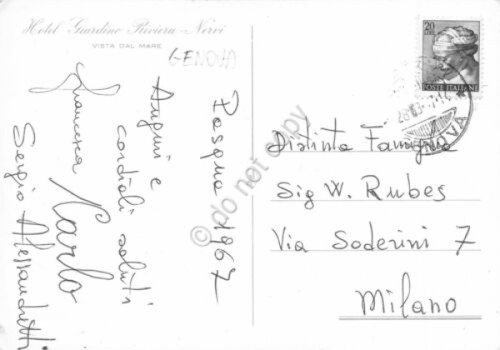 Hotel Giardino Riviera - Nervi
VISTA DAL MARE
GENOVA
Pasqua 1967
Auguri e
cordiali saluti
Francesca
Carlo
Sergio Alessandretti
20
LIRE
POSTE ITALIANE
Distinta Famiglia
Sig W. Rubes
Via Soderini 7
Milano
© do not copy